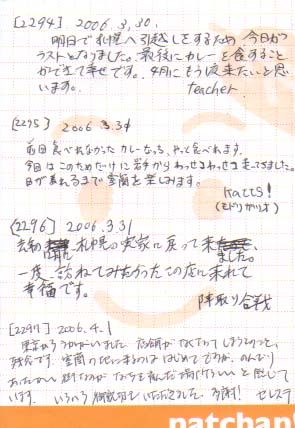 [2294] 2006.3.30.
明日で札幌へ引越しをするため、今日が
ラストとなりました。最後にカレーを食すること
ができて幸せです。4月にもう1度来たいと思
います。 teacher.
[2295] 2006 3.31
前回食べれなかったカレーを、やっと食べれます。
今回はこのためだけに岩手からわっせわっせ走ってきました。
日が暮れるまで室蘭を楽しみます。
katts!
(モドリカツオ)
[2296] 2006.3.31
去年 札幌の実家に戻って来ました。
一度、訪れてみたかったこの店に来れて
幸福です。 陣取り合戦
[2297] 2006.4.1
東京からうかがいました。店舗がなくなってしまうそうで、
残念です。室蘭の地に来るのははじめてですが、のんびり
あたたかい街 と感じて
います。いろいろ御親切をいただきました。多謝!
patchan